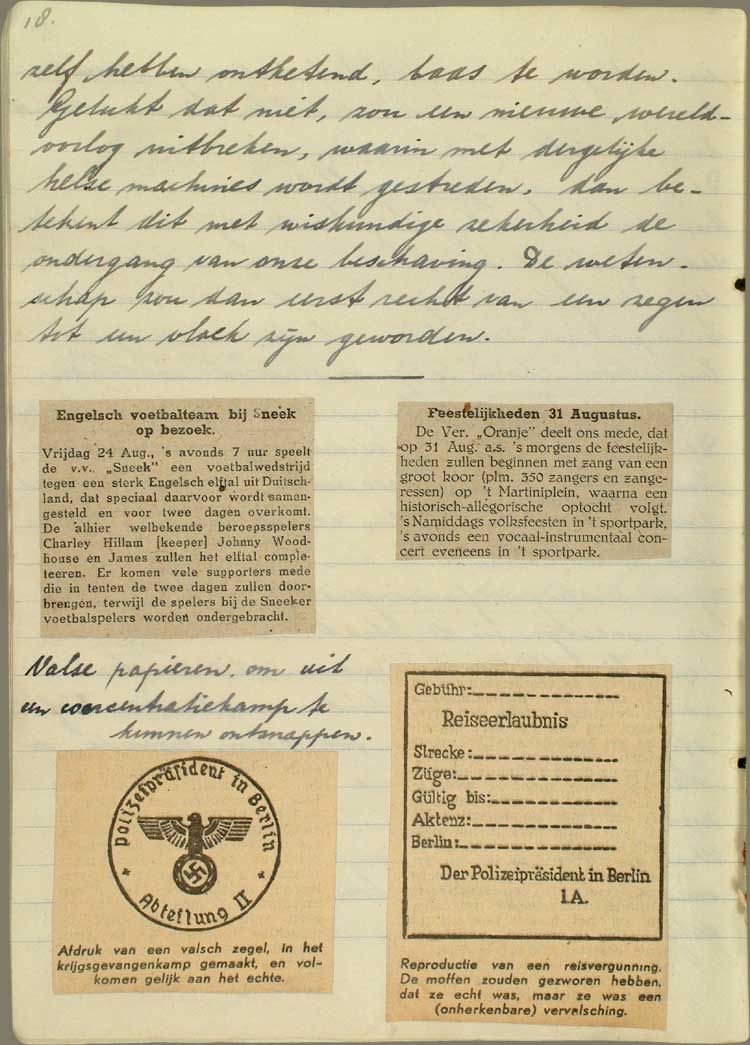 18.
zelf hebben ontketend, baas te worden.
Gelukt dat niet, zou een nieuwe wereld-
oorlog uitbreken, waarin met dergelijke
helse machines wordt gestreden, dan be-
tekent dit met wiskundige zekerheid de
ondergang van onze beschaving. De weten-
schap zou dan eerst recht van een zegen
tot een vloek zijn geworden.
Engelsch voetbalteam bij Sneek
op bezoek.
Vrijdag 24 Aug., 's avonds 7 uur speelt
de v.v. „Sneek" een voetbalwedstrijd
tegen een sterk Engelsch elftal uit Duitsch-
land, dat speciaal daarvoor wordt samen-
gesteld en voor twee dagen overkomt.
De alhier welbekende beroepsspelers
Charley Hillam [keeper] Johnny Wood-
house en James zullen het elftal comple-
teeren. Er komen vele supporters mede
die in tenten de twee dagen zullen door-
brengen, terwijl de spelers bij de Sneeker
voetbalspelers worden ondergebracht.
Feestelijkheden 31 Augustus.
De Ver. „Oranje" deelt ons mede, dat
op 31 Aug. a.s. 's morgens de feestelijk-
heden zullen beginnen met zang van een
groot koor (plm. 350 zangers en zange-
ressen) op 't Martiniplein, waarna een
historisch-allegorische optocht volgt.
's Namiddags volksfeesten in 't sportpark,
's avonds een vocaal-instrumentaal con-
cert eveneens in 't sportpark.
Valse papieren, om uit
een concentratiekamp te
kunnen ontsnappen.
Polizeipräsident in Berlin
* Abteilung II *
Afdruk van een valsch zegel, in het
krijgsgevangenkamp gemaakt, en vol-
komen gelijk aan het echte.
Gebühr:
Reiseerlaubnis
Strecke:
Züge:
Gültig bis:
Aktenz:
Berlin:
Der Polizeipräsident in Berlin
I.A.
Reproductie van een reisvergunning.
De moffen zouden gezworen hebben,
dat ze echt was, maar ze was een
(onherkenbare) vervalsching.